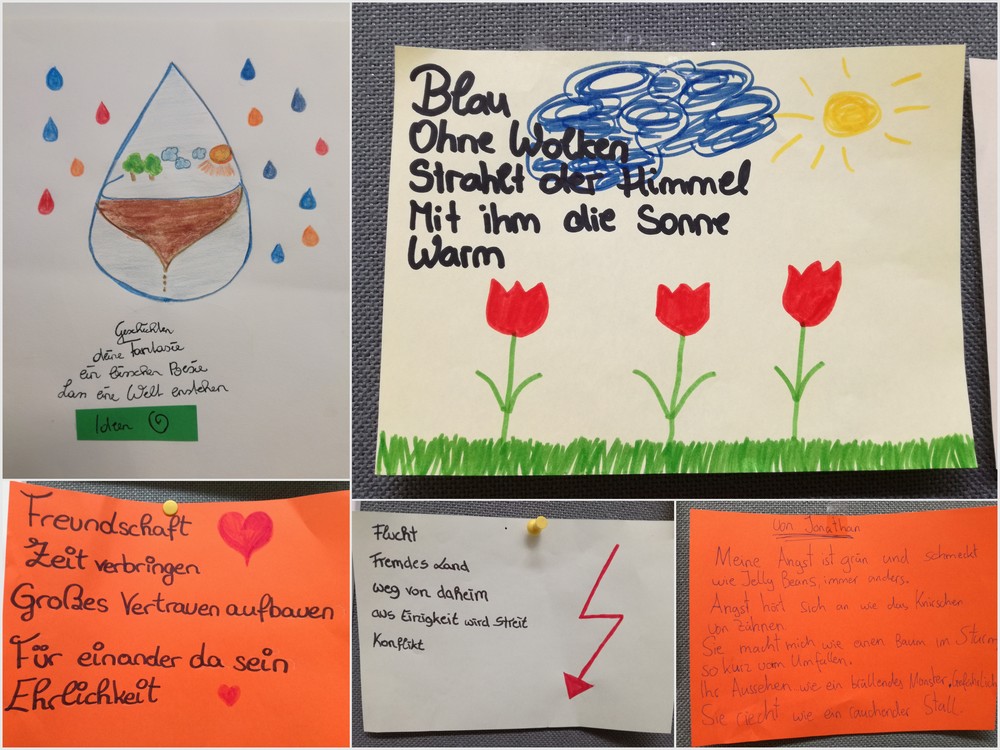 Geschichten
deine Fantasie
ein bisschen Poesie
Lass eine Welt entstehen
Ideen
Blau
Ohne Wolken
Strahlt der Himmel
Mit ihm die Sonne
Warm
Freundschaft
Zeit verbringen
Großes Vertrauen aufbauen
Für einander da sein
Ehrlichkeit
Flucht
Fremdes Land
weg von daheim
aus Einigkeit wird Streit
Konflikt
Von Jonathan
Meine Angst ist grün und schmeckt
wie Jelly Beans, immer anders.
Angst hört sich an wie das Knirschen
von Zähnen
Sie macht mich wie einen Baum im Sturm
so kurz vorm Umfallen.
Ihr Aussehen wie ein brüllendes Monster,
Sie riecht wie ein rauchender Stall.